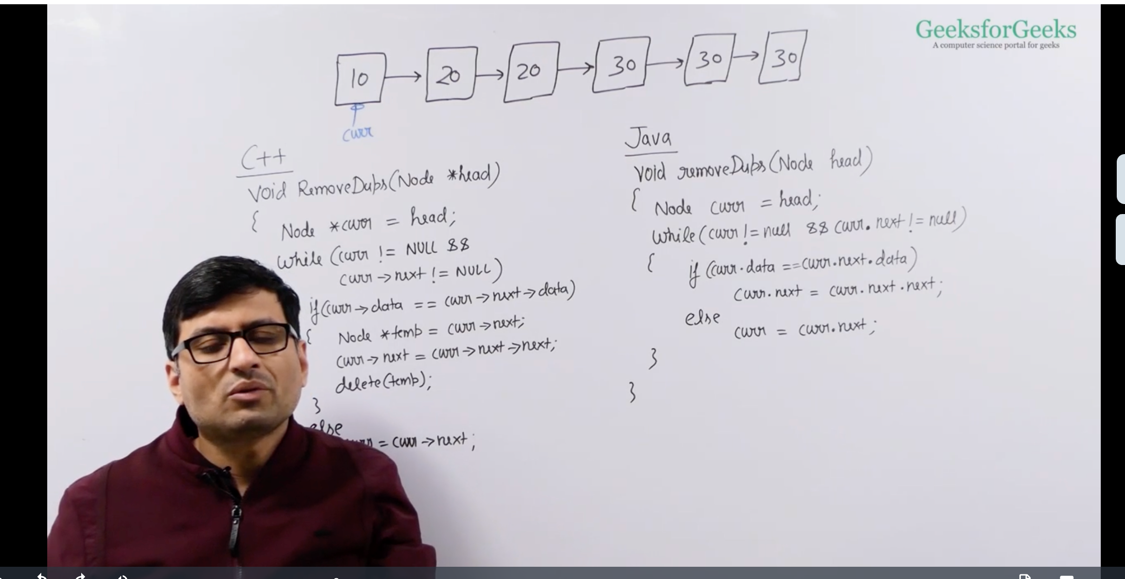 GeeksforGeeks
A computer science portal for geeks
10 → 20 → 20 → 30 → 30 → 30
curr
C++
void RemoveDups(Node *head)
{ Node *curr = head;
while (curr != NULL &&
curr → next != NULL)
if(curr → data == curr → next → data)
{ Node *temp = curr → next;
curr → next = curr → next → next;
delete(temp);
}
else
= curr → next;
Java
void removeDups(Node head)
{ Node curr = head;
while(curr != null && curr.next != null)
{ if (curr.data == curr.next.data)
curr.next = curr.next.next;
else
curr = curr.next;
}
}